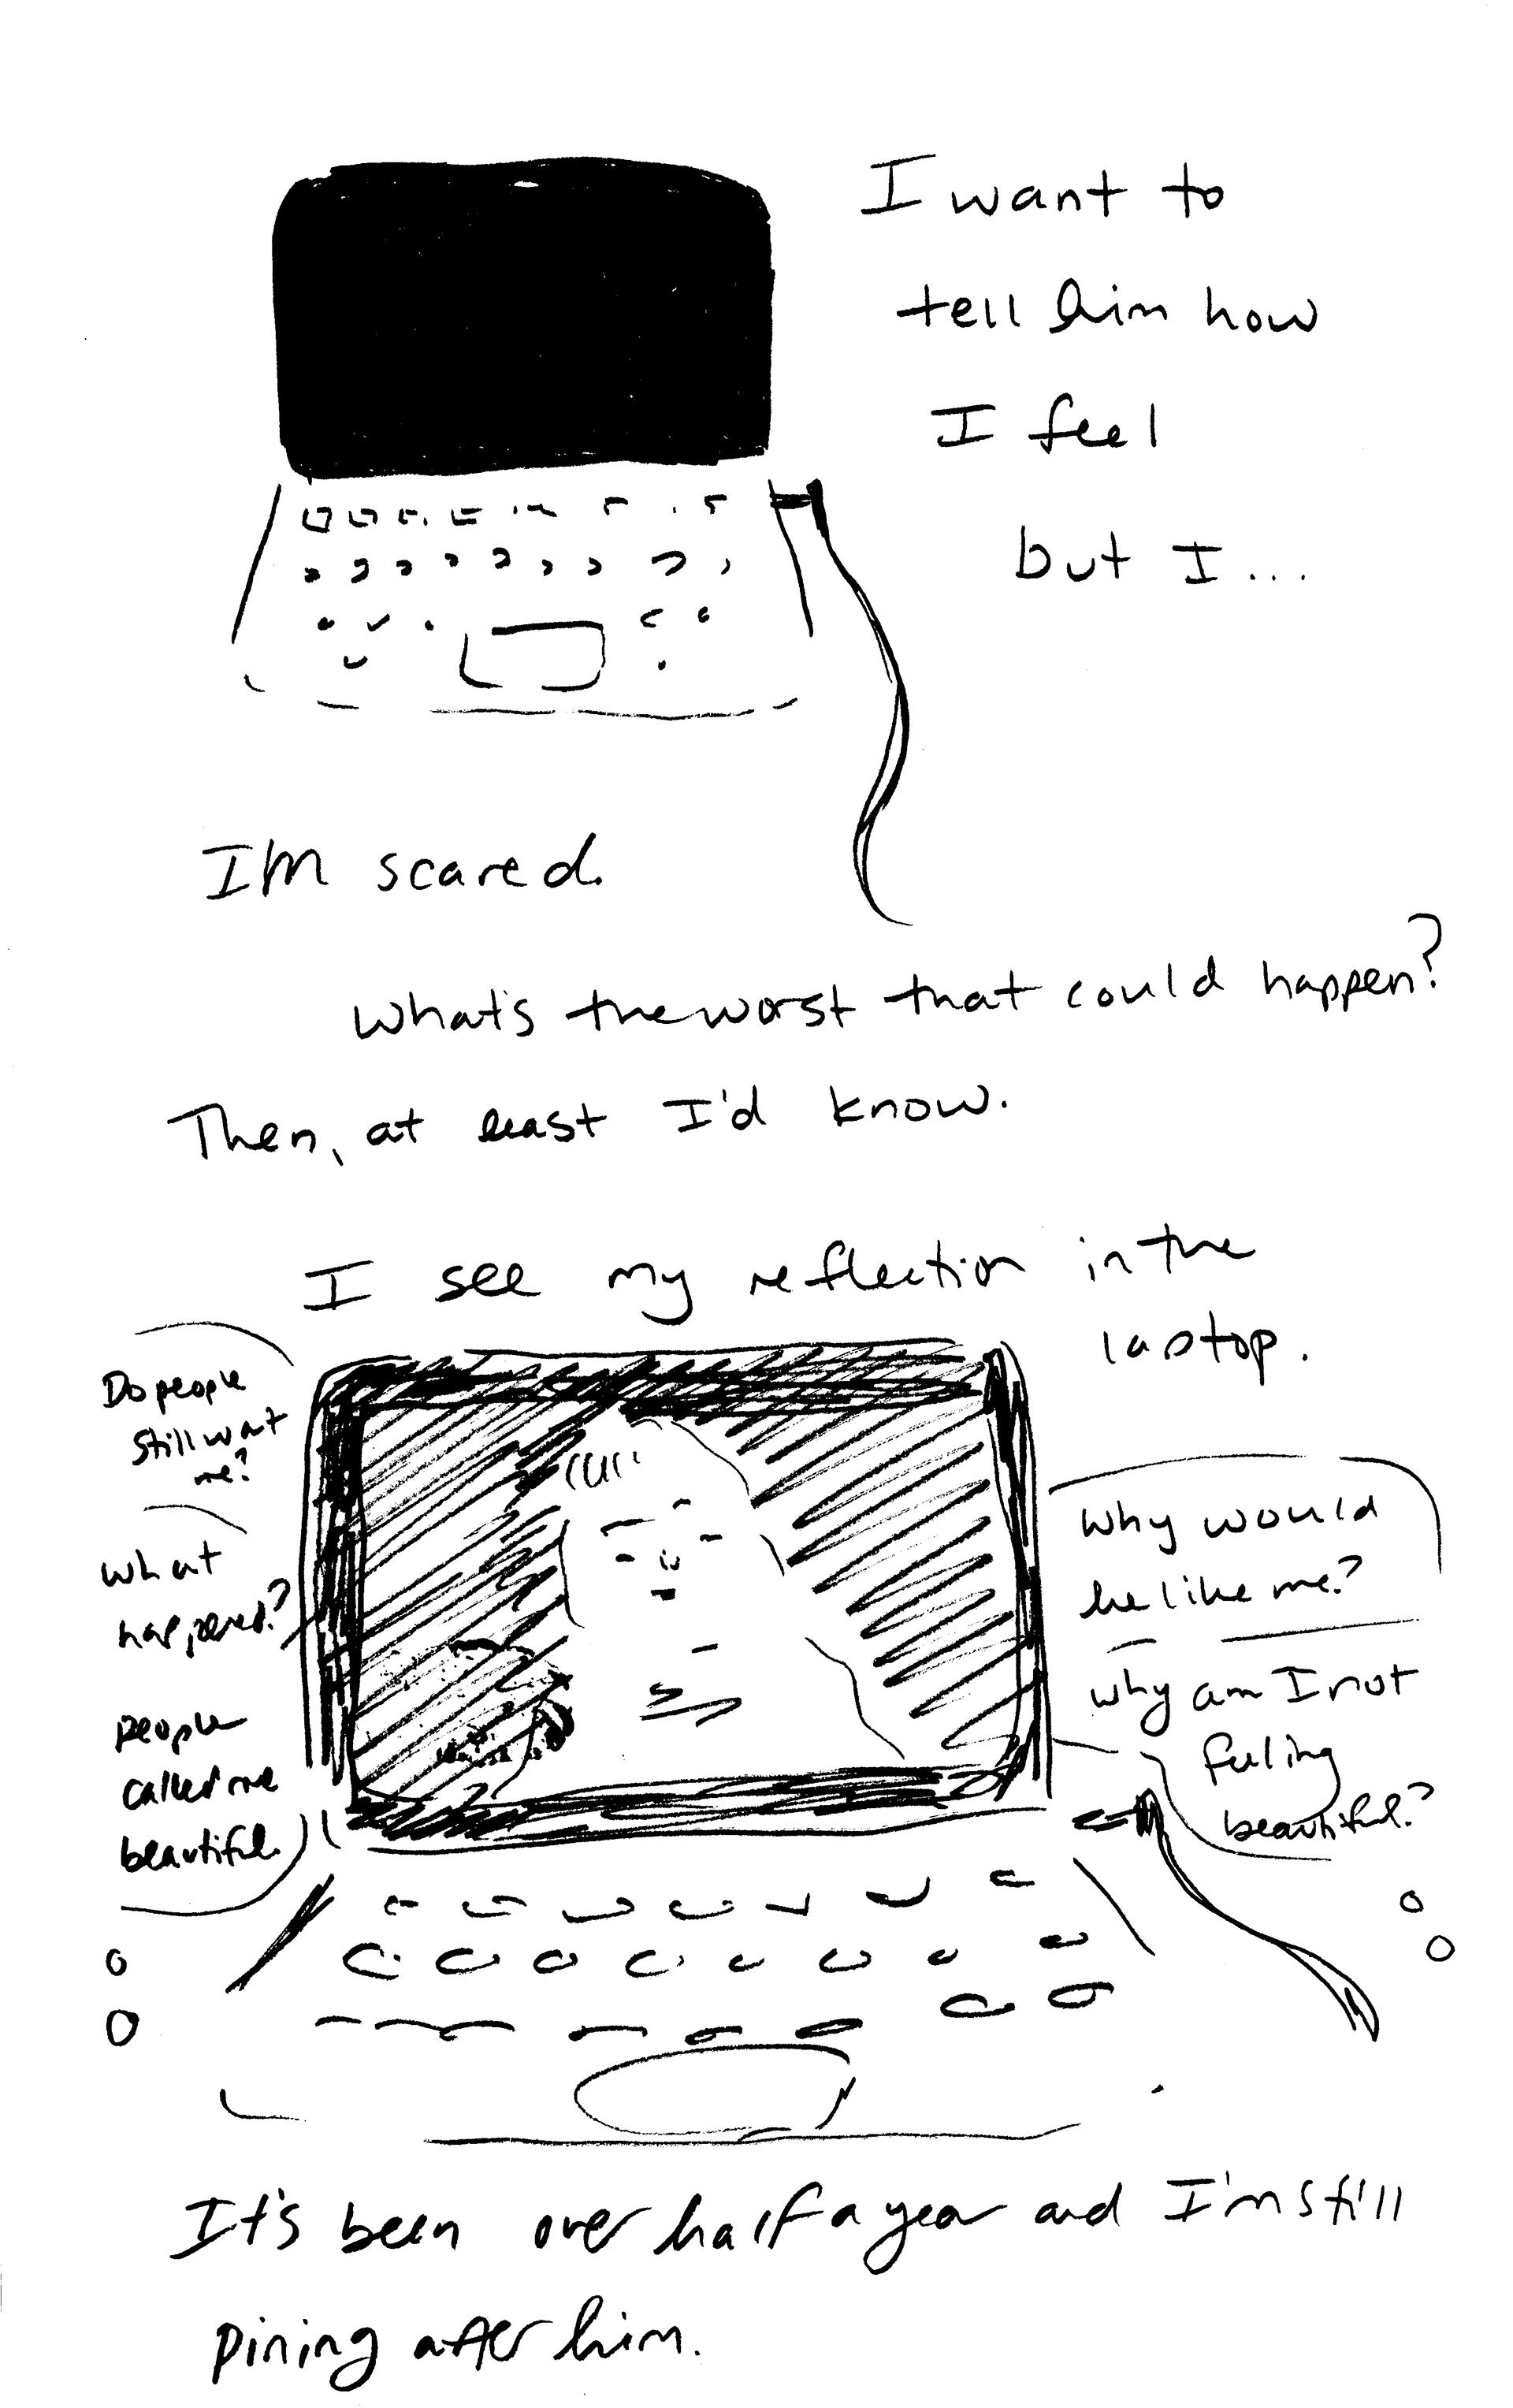 I want to
tell him how
I feel
but I...
I'M scared.
What's the worst that could happen?
Then, at least I'd know.
I see my reflection in the
laptop.
Do people
still want
me?
What
happened?
People
called me
beautiful.
Why would
he like me?
Why am I not
feeling
beautiful?
It's been over half a year and I'm still
pining after him.